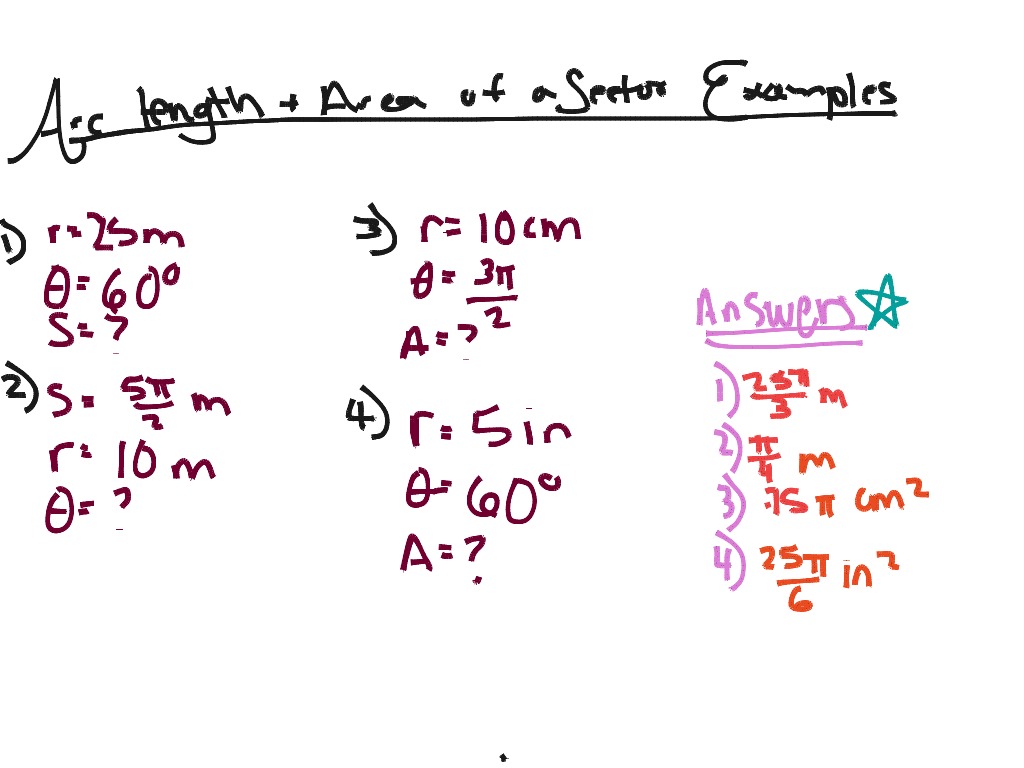 Arc length + Area of a Sector Examples
1) r = 25m
θ = 60°
S = ?
2) S = 5π/2 m
r = 10 m
θ = ?
3) r = 10cm
θ = 3π/2
A = ?
4) r = 5in
θ = 60°
A = ?
Answers
1) 25π/3 m
2) π/4 m
3) 75π cm²
4) 25π/6 in²